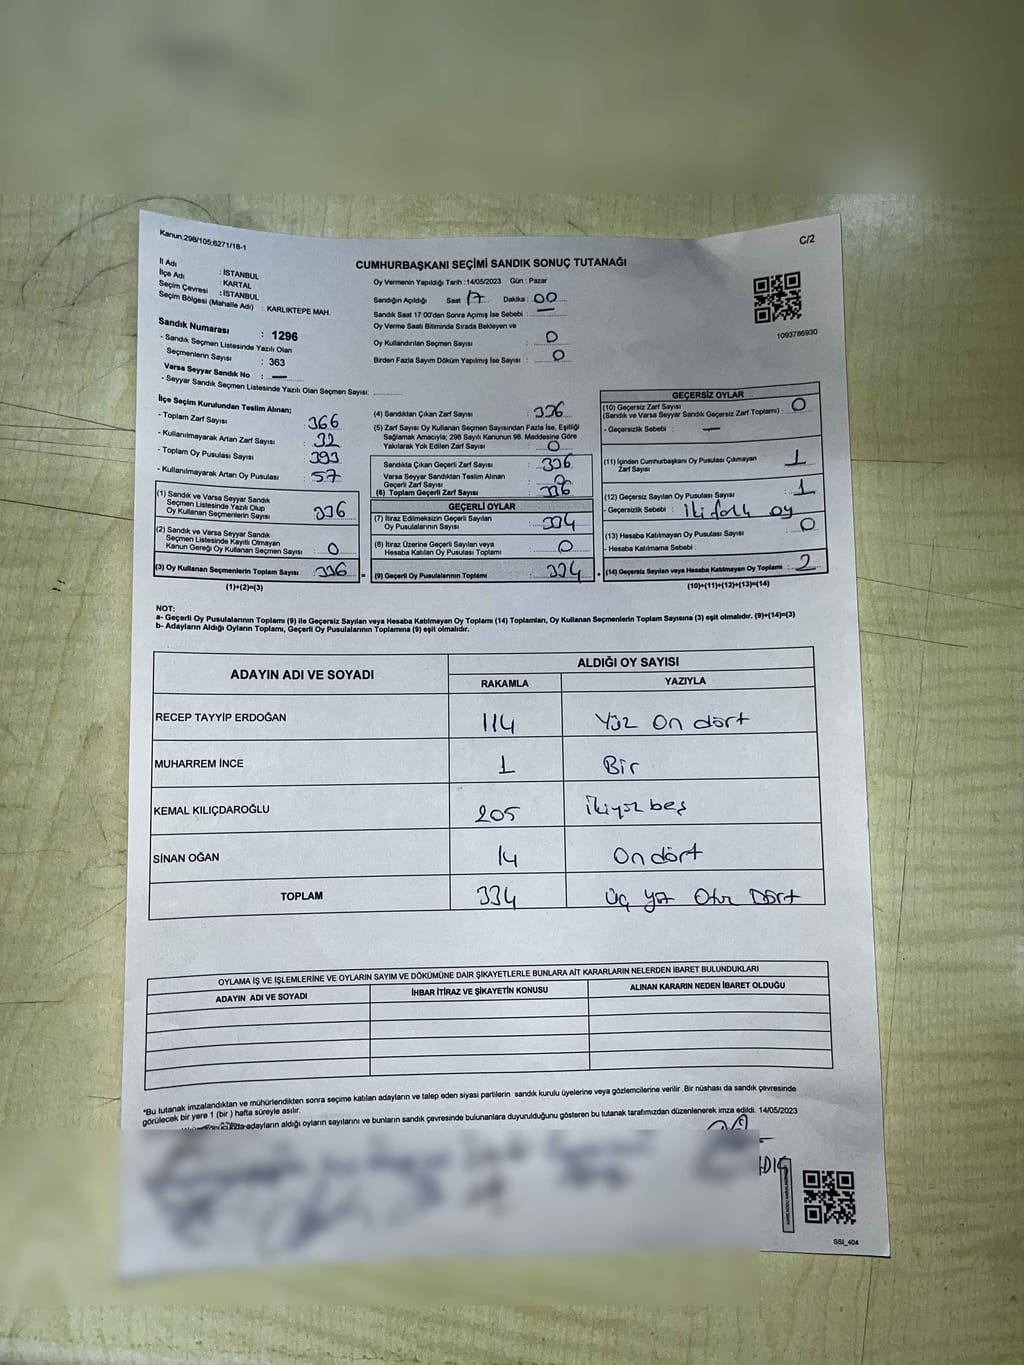 Kanun:298/105;6271/18-1
C/2
CUMHURBAŞKANI SEÇİMİ SANDIK SONUÇ TUTANAĞI
İl Adı : İSTANBUL
İlçe Adı : KARTAL
Seçim Çevresi : İSTANBUL
Seçim Bölgesi (Mahalle Adı) : KARLIKTEPE MAH.
Sandık Numarası : 1296
- Sandık Seçmen Listesinde Yazılı Olan
Seçmenlerin Sayısı : 363
Varsa Seyyar Sandık No : —
- Seyyar Sandık Seçmen Listesinde Yazılı Olan Seçmen Sayısı:
Oy Vermenin Yapıldığı Tarih :14/05/2023 Gün : Pazar
Sandığın Açıldığı Saat 17 Dakika : 00
Sandık Saat 17:00'den Sonra Açımış İse Sebebi : —
Oy Verme Saati Bitiminde Sırada Bekleyen ve
Oy Kullandırılan Seçmen Sayısı : 0
Birden Fazla Sayım Döküm Yapılmış İse Sayısı : 0
1093786930
İlçe Seçim Kurulundan Teslim Alınan;
- Toplam Zarf Sayısı : 366
- Kullanılmayarak Artan Zarf Sayısı : 32
- Toplam Oy Pusulası Sayısı : 393
- Kullanılmayarak Artan Oy Pusulası : 57
(1) Sandık ve Varsa Seyyar Sandık
Seçmen Listesinde Yazılı Olup
Oy Kullanan Seçmenlerin Sayısı : 336
(2) Sandık ve Varsa Seyyar Sandık
Seçmen Listesinde Kayıtlı Olmayan
Kanun Gereği Oy Kullanan Seçmen Sayısı : 0
(3) Oy Kullanan Seçmenlerin Toplam Sayısı : 336
(1)+(2)=(3)
(4) Sandıktan Çıkan Zarf Sayısı : 336
(5) Zarf Sayısı Oy Kullanan Seçmen Sayısından Fazla İse, Eşitliği
Sağlamak Amacıyla; 298 Sayılı Kanunun 98. Maddesine Göre
Yakılarak Yok Edilen Zarf Sayısı : 0
Sandıkta Çıkan Geçerli Zarf Sayısı : 336
Varsa Seyyar Sandıktan Teslim Alınan
Geçerli Zarf Sayısı : 0
(6) Toplam Geçerli Zarf Sayısı : 336
GEÇERLİ OYLAR
(7) İtiraz Edilmeksizin Geçerli Sayılan
Oy Pusulasının Sayısı : 334
(8) İtiraz Üzerine Geçerli Sayılan veya
Hesaba Katılan Oy Pusulası Toplamı : 0
= (9) Geçerli Oy Pusulalarının Toplamı : 334
GEÇERSİZ OYLAR
(10) Geçersiz Zarf Sayısı
(Sandık ve Varsa Seyyar Sandık Geçersiz Zarf Toplamı) : 0
- Geçersizlik Sebebi : —
(11) İçinden Cumhurbaşkanı Oy Pusulası Çıkmayan
Zarf Sayısı : 1
(12) Geçersiz Sayılan Oy Pusulası Sayısı : 1
- Geçersizlik Sebebi : oy
(13) Hesaba Katılmayan Oy Pusulası Sayısı : 0
- Hesaba Katılmama Sebebi :
+ (14) Geçersiz Sayılan veya Hesaba Katılmayan Oy Toplamı : 2
(10)+(11)+(12)+(13)=(14)
NOT:
a- Geçerli Oy Pusulalarının Toplamı (9) ile Geçersiz Sayılan veya Hesaba Katılmayan Oy Toplamı (14) Toplamları, Oy Kullanan Seçmenlerin Toplam Sayısına (3) eşit olmalıdır. (9)+(14)=(3)
b- Adayların Aldığı Oyların Toplamı, Geçerli Oy Pusulalarının Toplamına (9) eşit olmalıdır.
ADAYIN ADI VE SOYADI ALDIĞI OY SAYISI
RAKAMLA YAZIYLA
RECEP TAYYİP ERDOĞAN 114 Yüz On dört
MUHARREM İNCE 1 Bir
KEMAL KILIÇDAROĞLU 205 İkiyüz beş
SİNAN OĞAN 14 On dört
TOPLAM 334 Üç yüz Otuz Dört
OYLAMA İŞ VE İŞLEMLERİNE VE OYLARIN SAYIM VE DÖKÜMÜNE DAİR ŞİKAYETLERLE BUNLARA AİT KARARLARIN NELERDEN İBARET BULUNDUKLARI
ADAYIN ADI VE SOYADI İHBAR İTİRAZ VE ŞİKAYETİN KONUSU ALINAN KARARIN NEDEN İBARET OLDUĞU
*Bu tutanak imzalandıktan ve mühürlendikten sonra seçime katılan adayların ve talep eden siyasi partilerin sandık kurulu üyelerine veya gözlemcilerine verilir .Bir nüshası da sandık çevresinde
görülecek bir yere 1 (bir ) hafta süreyle asılır.
adayların aldığı oyların sayılarını ve bunların sandık çevresinde bulunanlara duyurulduğunu gösteren bu tutanak tarafımızdan düzenlenerek imza edildi. 14/05/2023
SSI_404